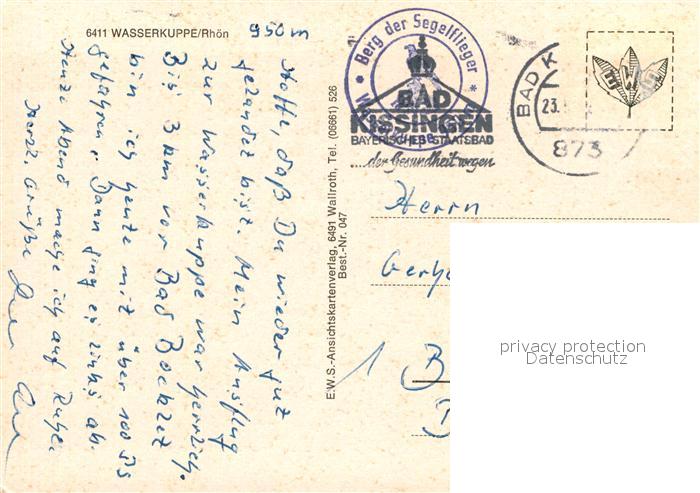 6411 WASSERKUPPE/Rhön
950 m
Hoffe, daß Du wieder gut
gelandet bist. Mein Ausflug
zur Wasserkuppe war herrlich.
Bis 3 km vor Bad
bin ich heute mit über 100
gefahren. Dann ging es links ab.
Heute Abend mache ich auf
Herzl. Grüße
E.W.S.-Ansichtskartenverlag, 6491 Wallroth, Tel. (06661) 526
Best.-Nr. 047
* Berg der Segelflieger *
BAD
KISSINGEN
BAYERISCHES STAATSBAD
...der Gesundheit wegen
BAD K
23.
873
EWS
Herrn
1 B
privacy protection
Datenschutz